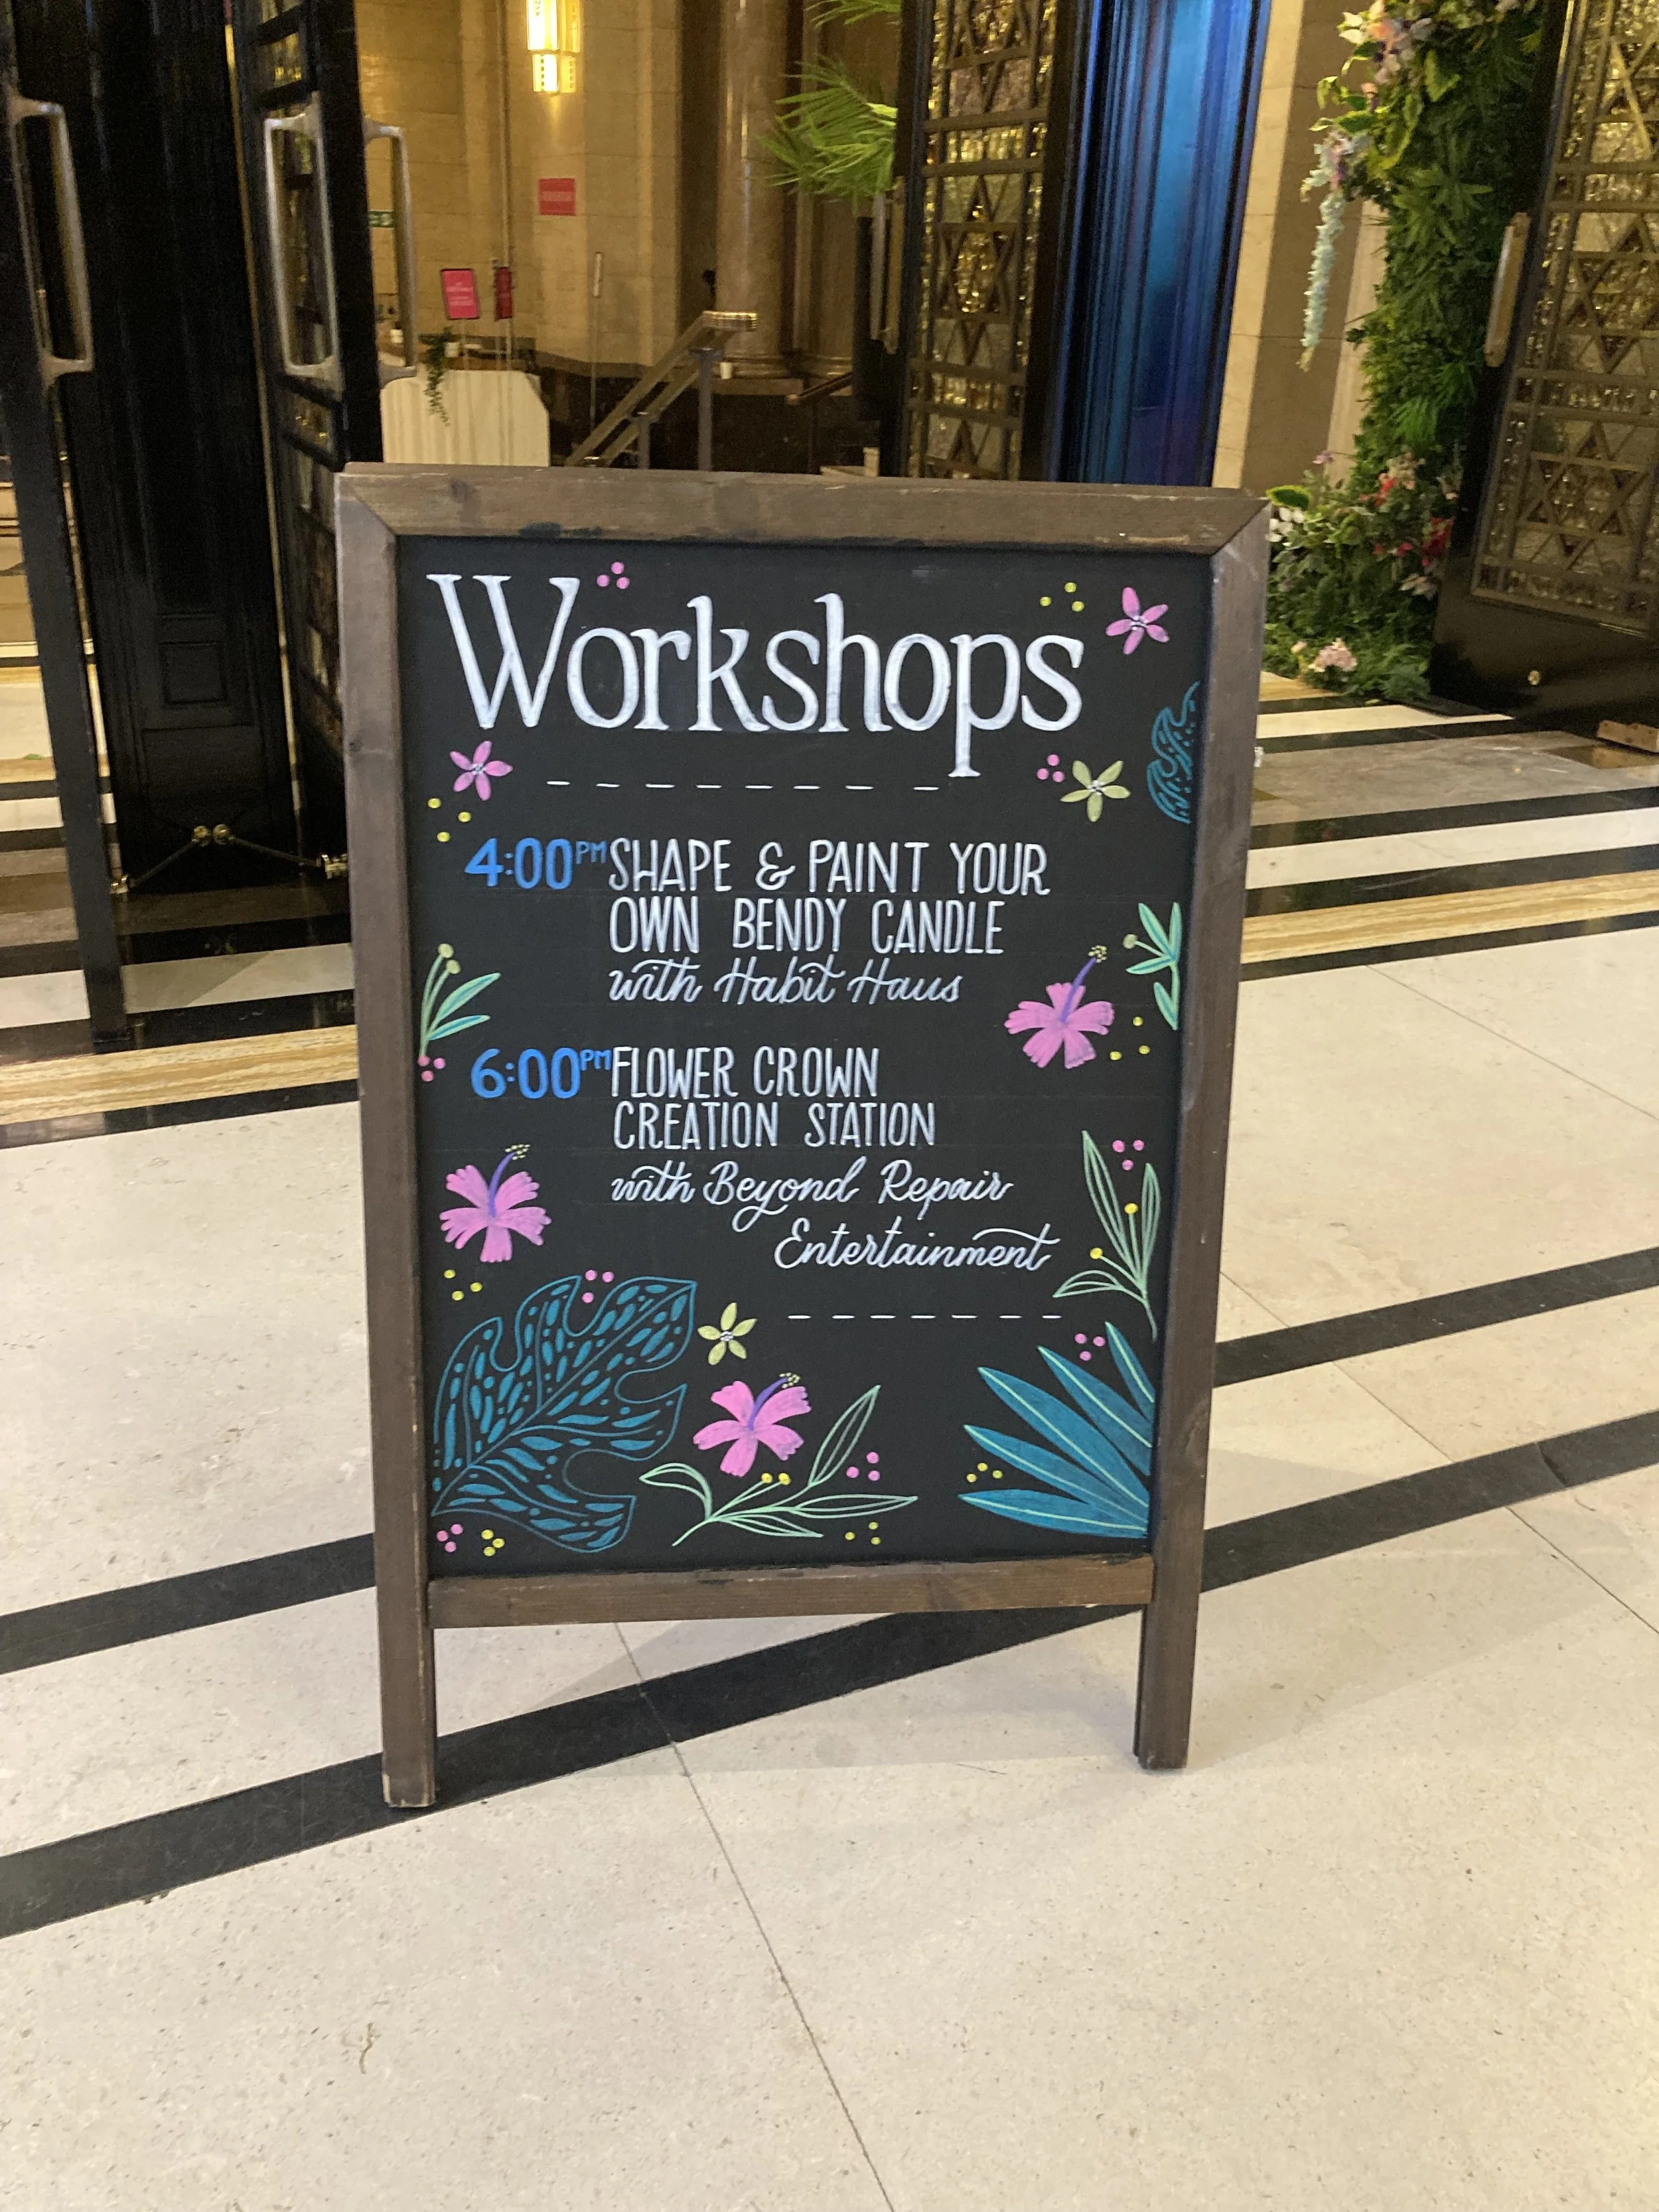 Workshops
4:00PM SHAPE & PAINT YOUR
OWN BENDY CANDLE
with Habit Haus
6:00PM FLOWER CROWN
CREATION STATION
with Beyond Repair
Entertainment